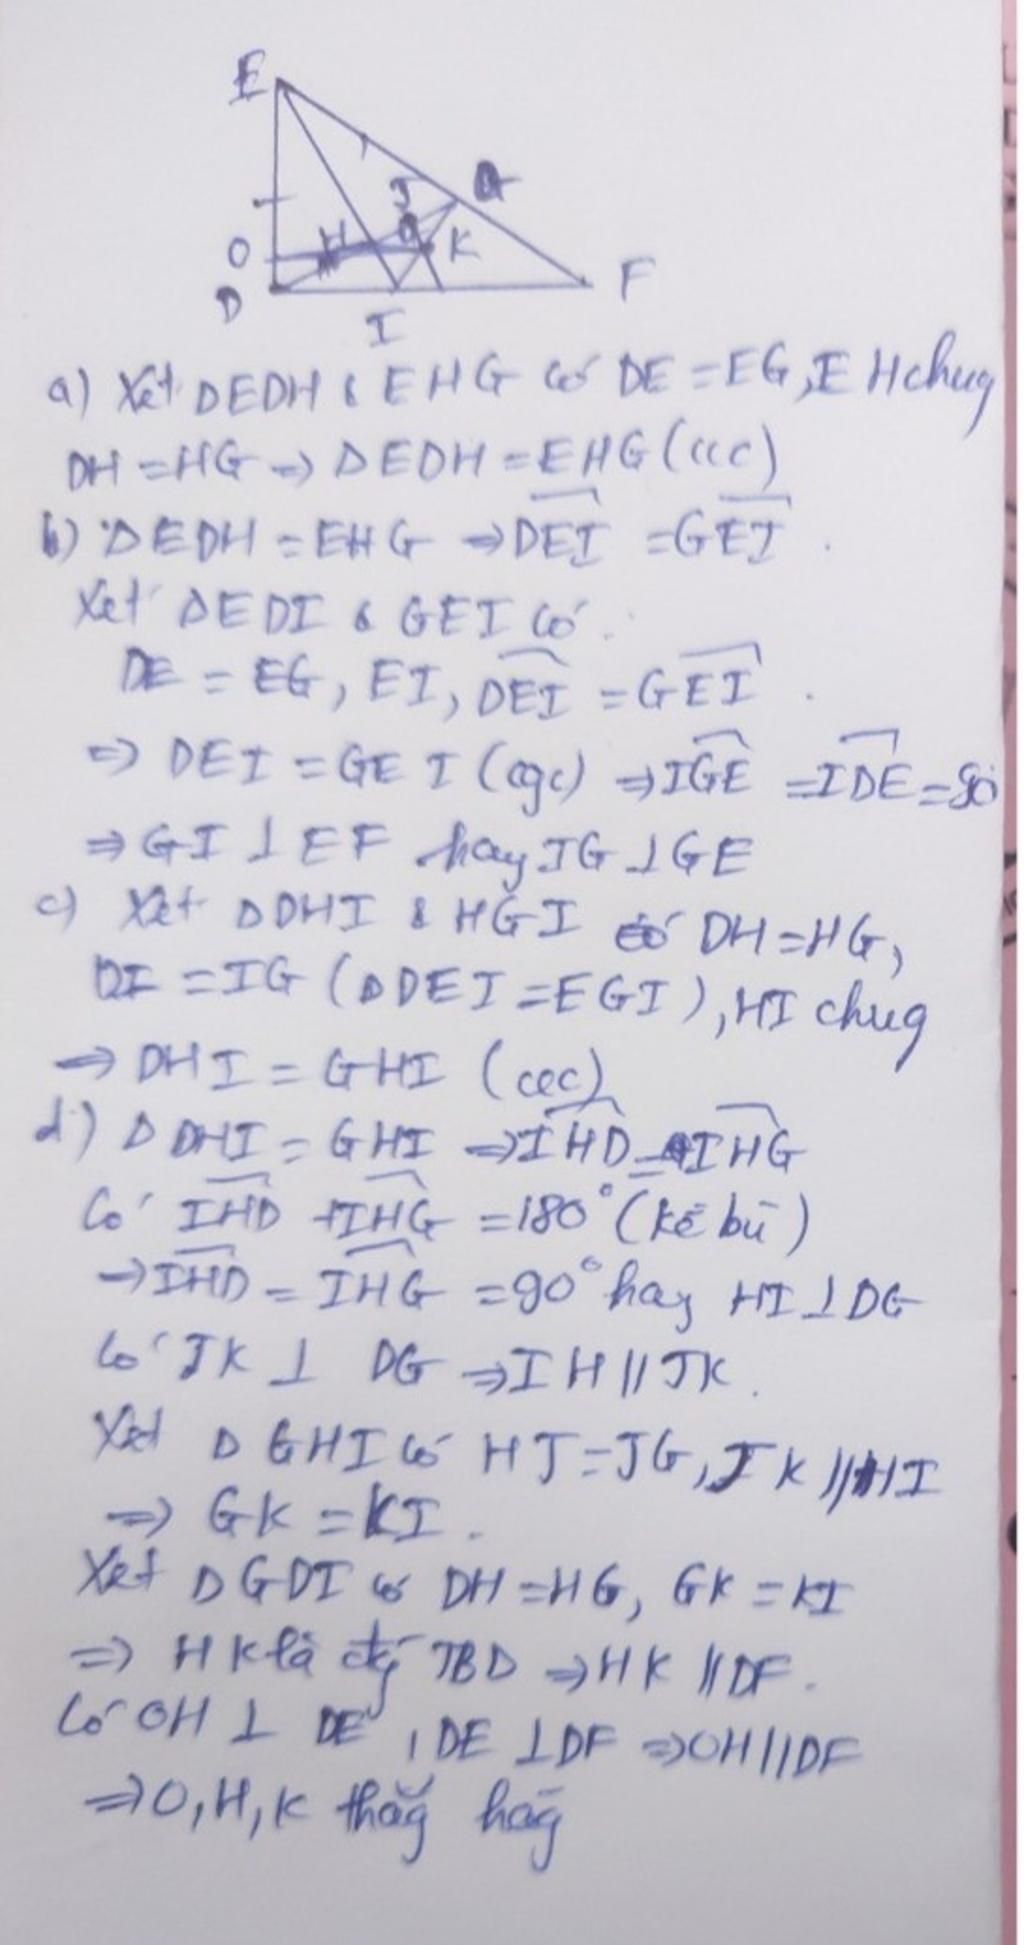 E
G
J
O
H
K
D
F
I
a) Xét ΔEDH & EHG có DE = EG, EH chug
DH = HG => ΔEDH = EHG (ccc)
b) ΔEDH = EHG => DEI = GEI
Xét ΔEDI & GEI có
DE = EG, EI, DEI = GEI
=> DEI = GEI (cgc) => IGE = IDE = 90
=> GI ⊥ EF hay IG ⊥ GE
c) Xét ΔDHI & HGI có DH = HG,
DI = IG (ΔDEI = EGI), HI chug
=> DHI = GHI (ccc)
d) ΔDHI = GHI => IHD = IHG
Có IHD + IHG = 180° (kề bù)
=> IHD = IHG = 90° hay HI ⊥ DG
Có JK ⊥ DG => IH // JK.
Xét ΔGHI có HJ = JG, JK // HI
=> GK = KI.
Xét ΔGDI có DH = HG, GK = KI
=> HK là TBD => HK // DF.
Có OH ⊥ DE, DE ⊥ DF => OH // DF
=> O, H, K thẳg hàg